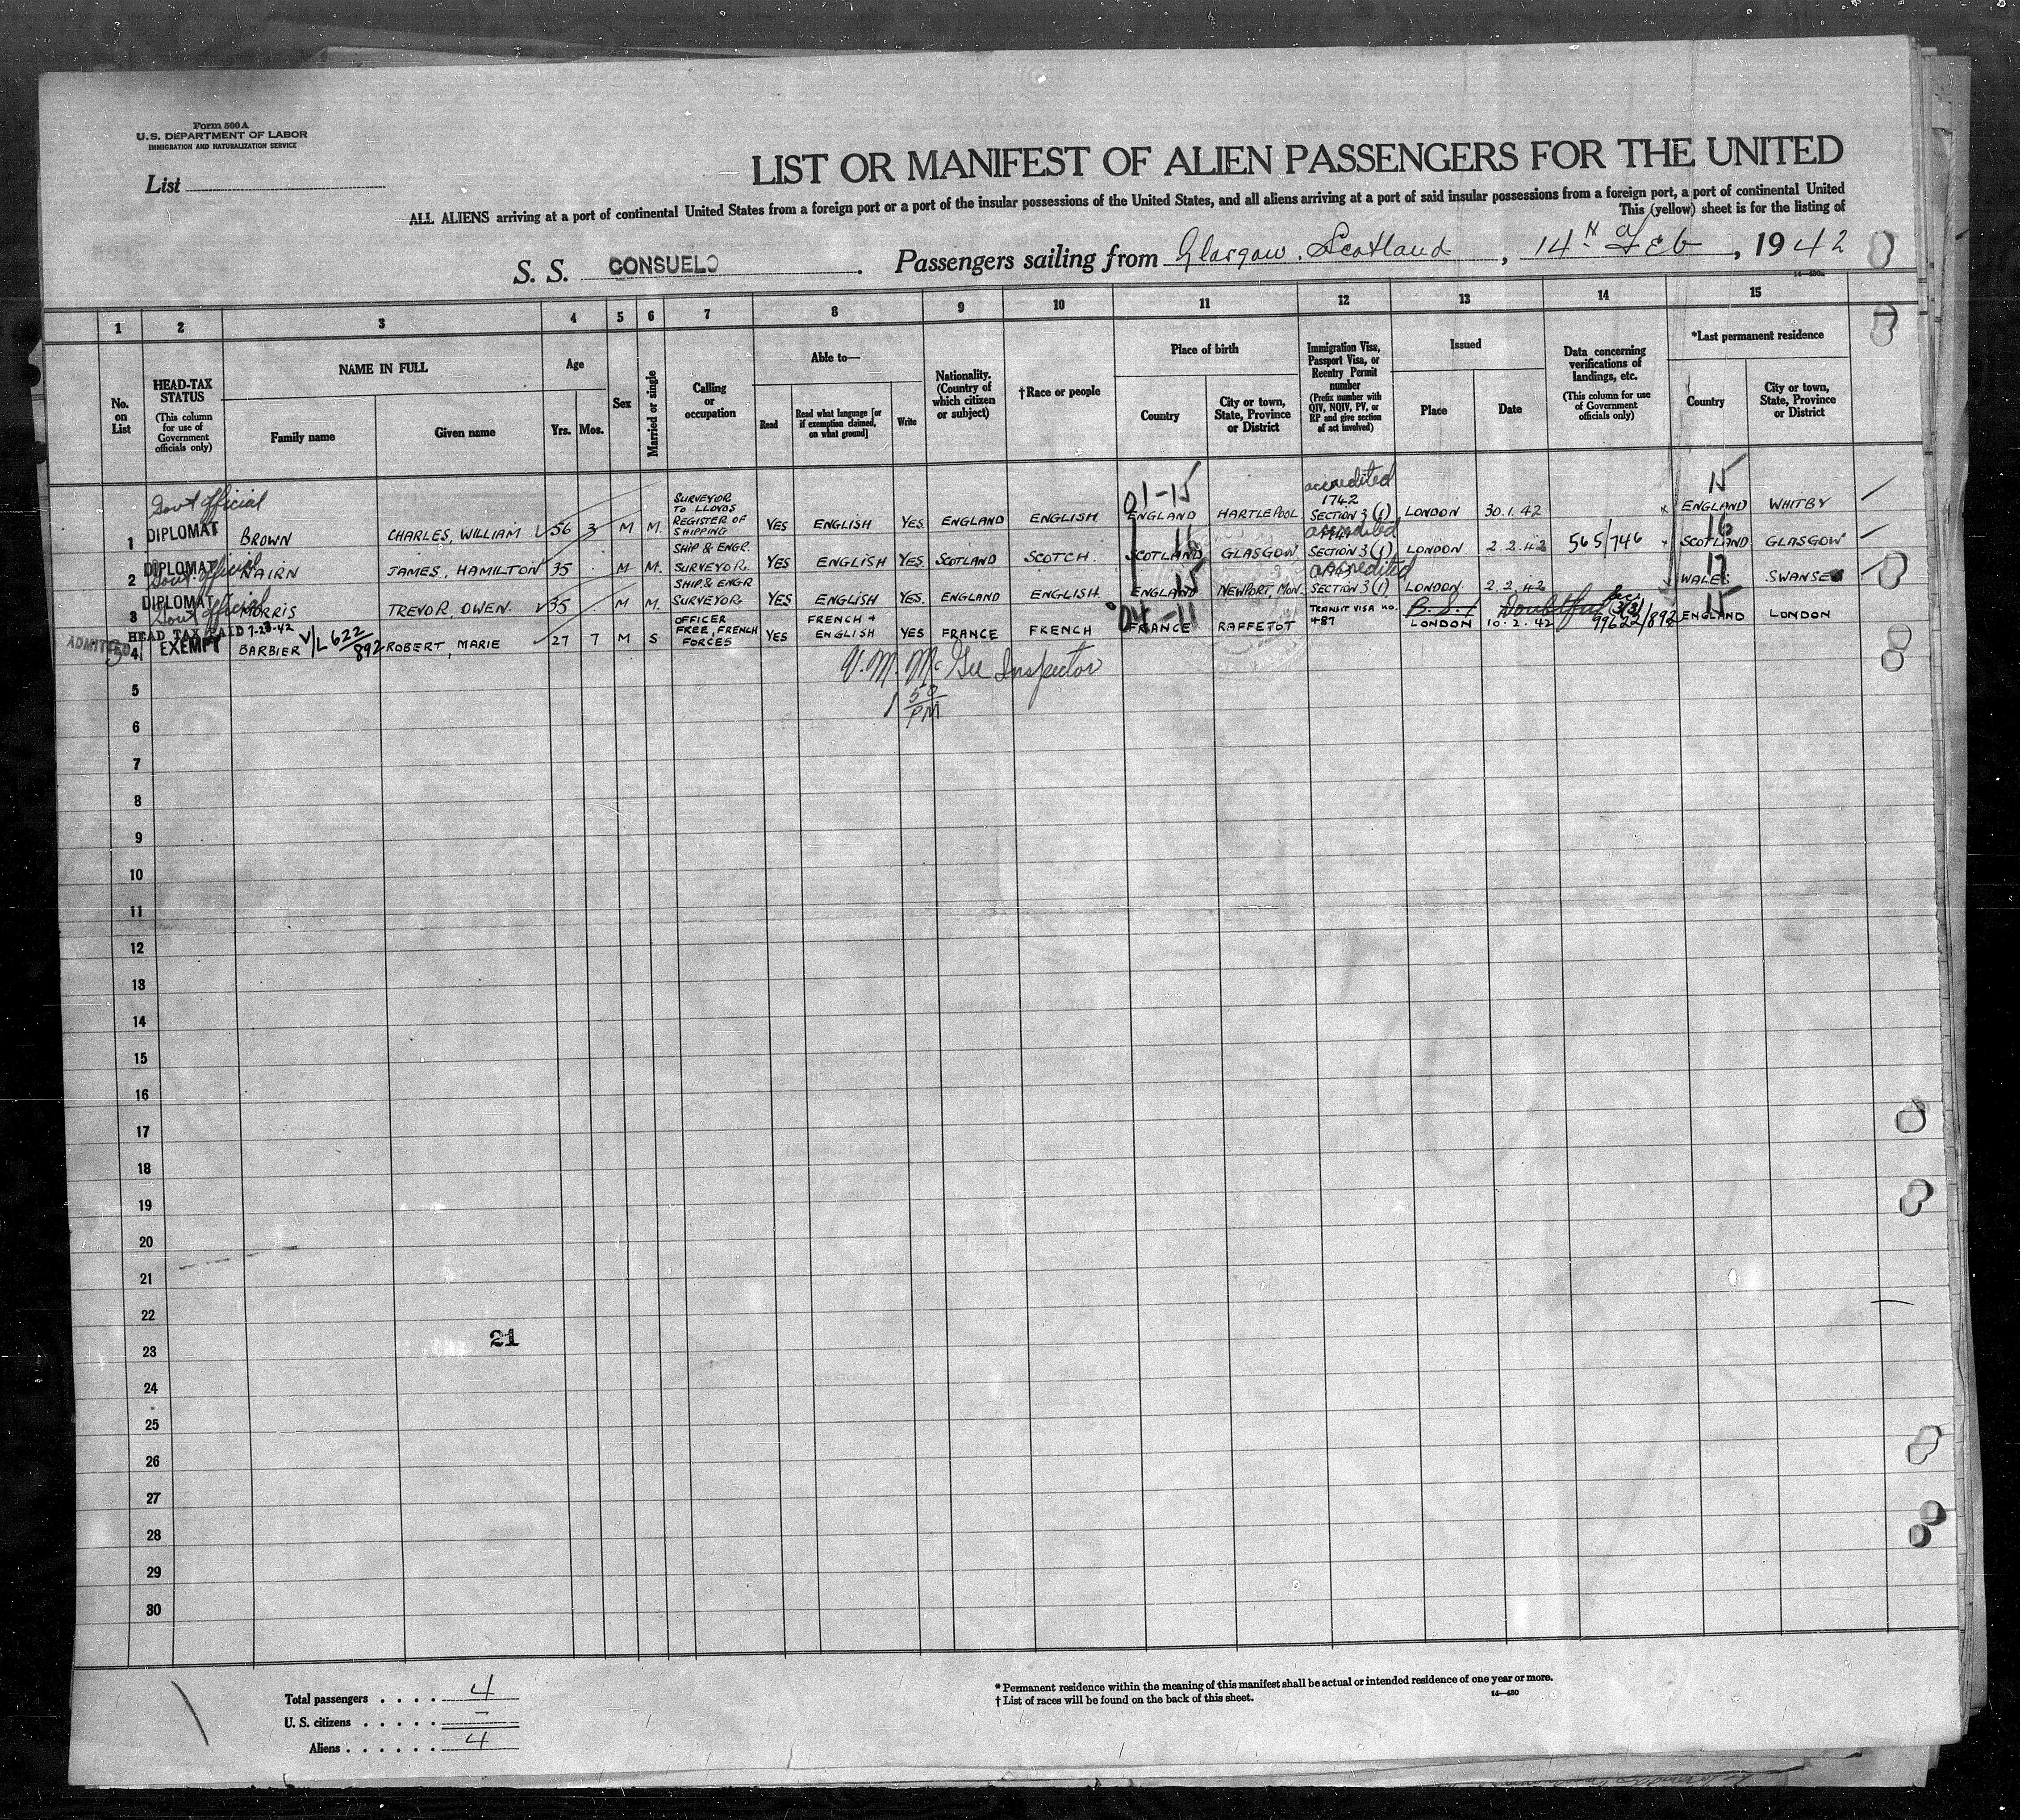 Form 500 A
U.S. DEPARTMENT OF LABOR
IMMIGRATION AND NATURALIZATION SERVICE
List
LIST OR MANIFEST OF ALIEN PASSENGERS FOR THE UNITED
ALL ALIENS arriving at a port of continental United States from a foreign port or a port of the insular possessions of the United States, and all aliens arriving at a port of said insular possessions from a foreign port, a port of continental United
This (yellow) sheet is for the listing of
S. S. CONSUELO . Passengers sailing from Glasgow. Scotland , 14TH Feb , 1942
14—430
1 2 3 4 5 6 7 8 9 10 11 12 13 14 15
No. on List
HEAD-TAX STATUS
(This column for use of Government officials only)
NAME IN FULL
Family name
Given name
Age
Yrs. Mos.
Sex
Married or single
Calling or occupation
Able to—
Read
Read what language [or if exemption claimed, on what ground]
Write
Nationality. (Country of which citizen or subject)
†Race or people
Place of birth
Country
City or town, State, Province or District
Immigration Visa, Passport Visa, or Reentry Permit number
(Prefix number with QIV, NQIV, PV, or RP and give section of act involved)
Issued
Place
Date
Data concerning verifications of landings, etc.
(This column for use of Government officials only)
*Last permanent residence
Country
City or town, State, Province or District
Govt Official 01-15 accredited 15
1 DIPLOMAT BROWN CHARLES, WILLIAM 56 3 M M. SURVEYOR TO LLOYDS REGISTER OF SHIPPING YES ENGLISH YES ENGLAND ENGLISH ENGLAND HARTLEPOOL 1742 SECTION 3 (1) LONDON 30.1.42 ENGLAND WHITBY
Govt Official 16 accredited 16
2 DIPLOMAT NAIRN JAMES, HAMILTON 35 M M. SHIP & ENGR. SURVEYOR YES ENGLISH YES SCOTLAND SCOTCH. SCOTLAND GLASGOW SECTION 3 (1) LONDON 2.2.42 565/746 SCOTLAND GLASGOW
Govt Official 15 accredited 17
3 DIPLOMAT MORRIS TREVOR, OWEN. 35 M M. SHIP & ENGR SURVEYOR YES ENGLISH YES. ENGLAND ENGLISH. ENGLAND NEWPORT, MON. SECTION 3 (1) LONDON. 2.2.42 WALES SWANSEA
HEAD TAX PAID 7-28-42 04-11 B.S.I Doubtful 15
ADMITTED 4 EXEMPT BARBIER V/L 622/892 ROBERT, MARIE 27 7 M S OFFICER FREE, FRENCH FORCES YES FRENCH + ENGLISH YES FRANCE FRENCH FRANCE RAFFETOT TRANSIT VISA NO. 487 LONDON 10.2.42 99622/892 ENGLAND LONDON
V. M. McGee Inspector
1 50 PM
5
6
7
8
9
10
11
12
13
14
15
16
17
18
19
20
21
22
21
23
24
25
26
27
28
29
30
Total passengers . . . . 4
U. S. citizens . . . . . –
Aliens . . . . . . 4
* Permanent residence within the meaning of this manifest shall be actual or intended residence of one year or more.
† List of races will be found on the back of this sheet.
14—430